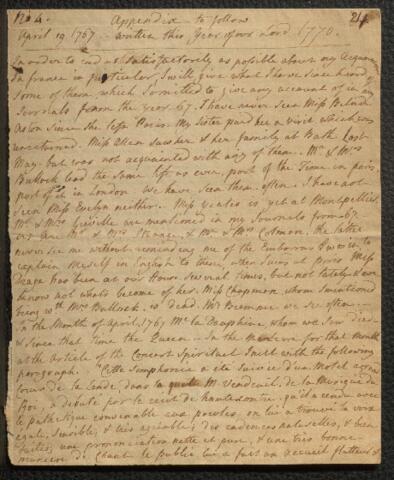 No. 4. Appendix to follow 214
April 19. 1767 written this Year of our Lord 1770.
In order to end as satisfactorily as possible about my Acquain
in france in particular, I will give what I have since heard of
Some of them which I omitted to give any account of in my
Journals from the year 67. I have never seen Miss
since She left Paris. My Sister paid her a visit which was
unreturned. Miss Ellen & her family at Bath Last
May. but was not acquainted with any of them. Mr. & Mrs.
Bullock lead the Same life as ever, part of the Time in paris
part of it in London we have Seen them often. I have not
Seen Miss Evelyn neither. Miss is yet at Montpellier
Mr. & Mrs. Greville are mentioned in my Journals from 67.
are Mr. & Mrs. Strange, & Mr. & Mrs. Colman. the latter
never see me without reminding me of the Embarras I was in, to
explain myself in English to them, when at paris Miss
has been at our House Several times, but not lately & we
know not what's become of her. Miss Chapman whom I mentioned
being with Mrs. Bullock, is dead. Mr. we see often
In the Month of April 1767 Me. la Dauphine whom we Saw died
& Since that Time the Queen. In the for that Month
at the Article of the Concert Spirituel I met with the following
paragraph. "Cette Symphonie a été Suivie d'un Motet
dans la quelle M. de la Musique du
Roi, a débuté par le recit de hautecontre, qu'il a rendu avec
le pathétique convenable aux paroles, on lui a trouvé la voix
égale, Sensible, & très agréable; des cadences naturelles, & bien
faites; une prononciation nette et pure, & une très bonne
manière de Chant. le public lui a fait un accueil flatteur &